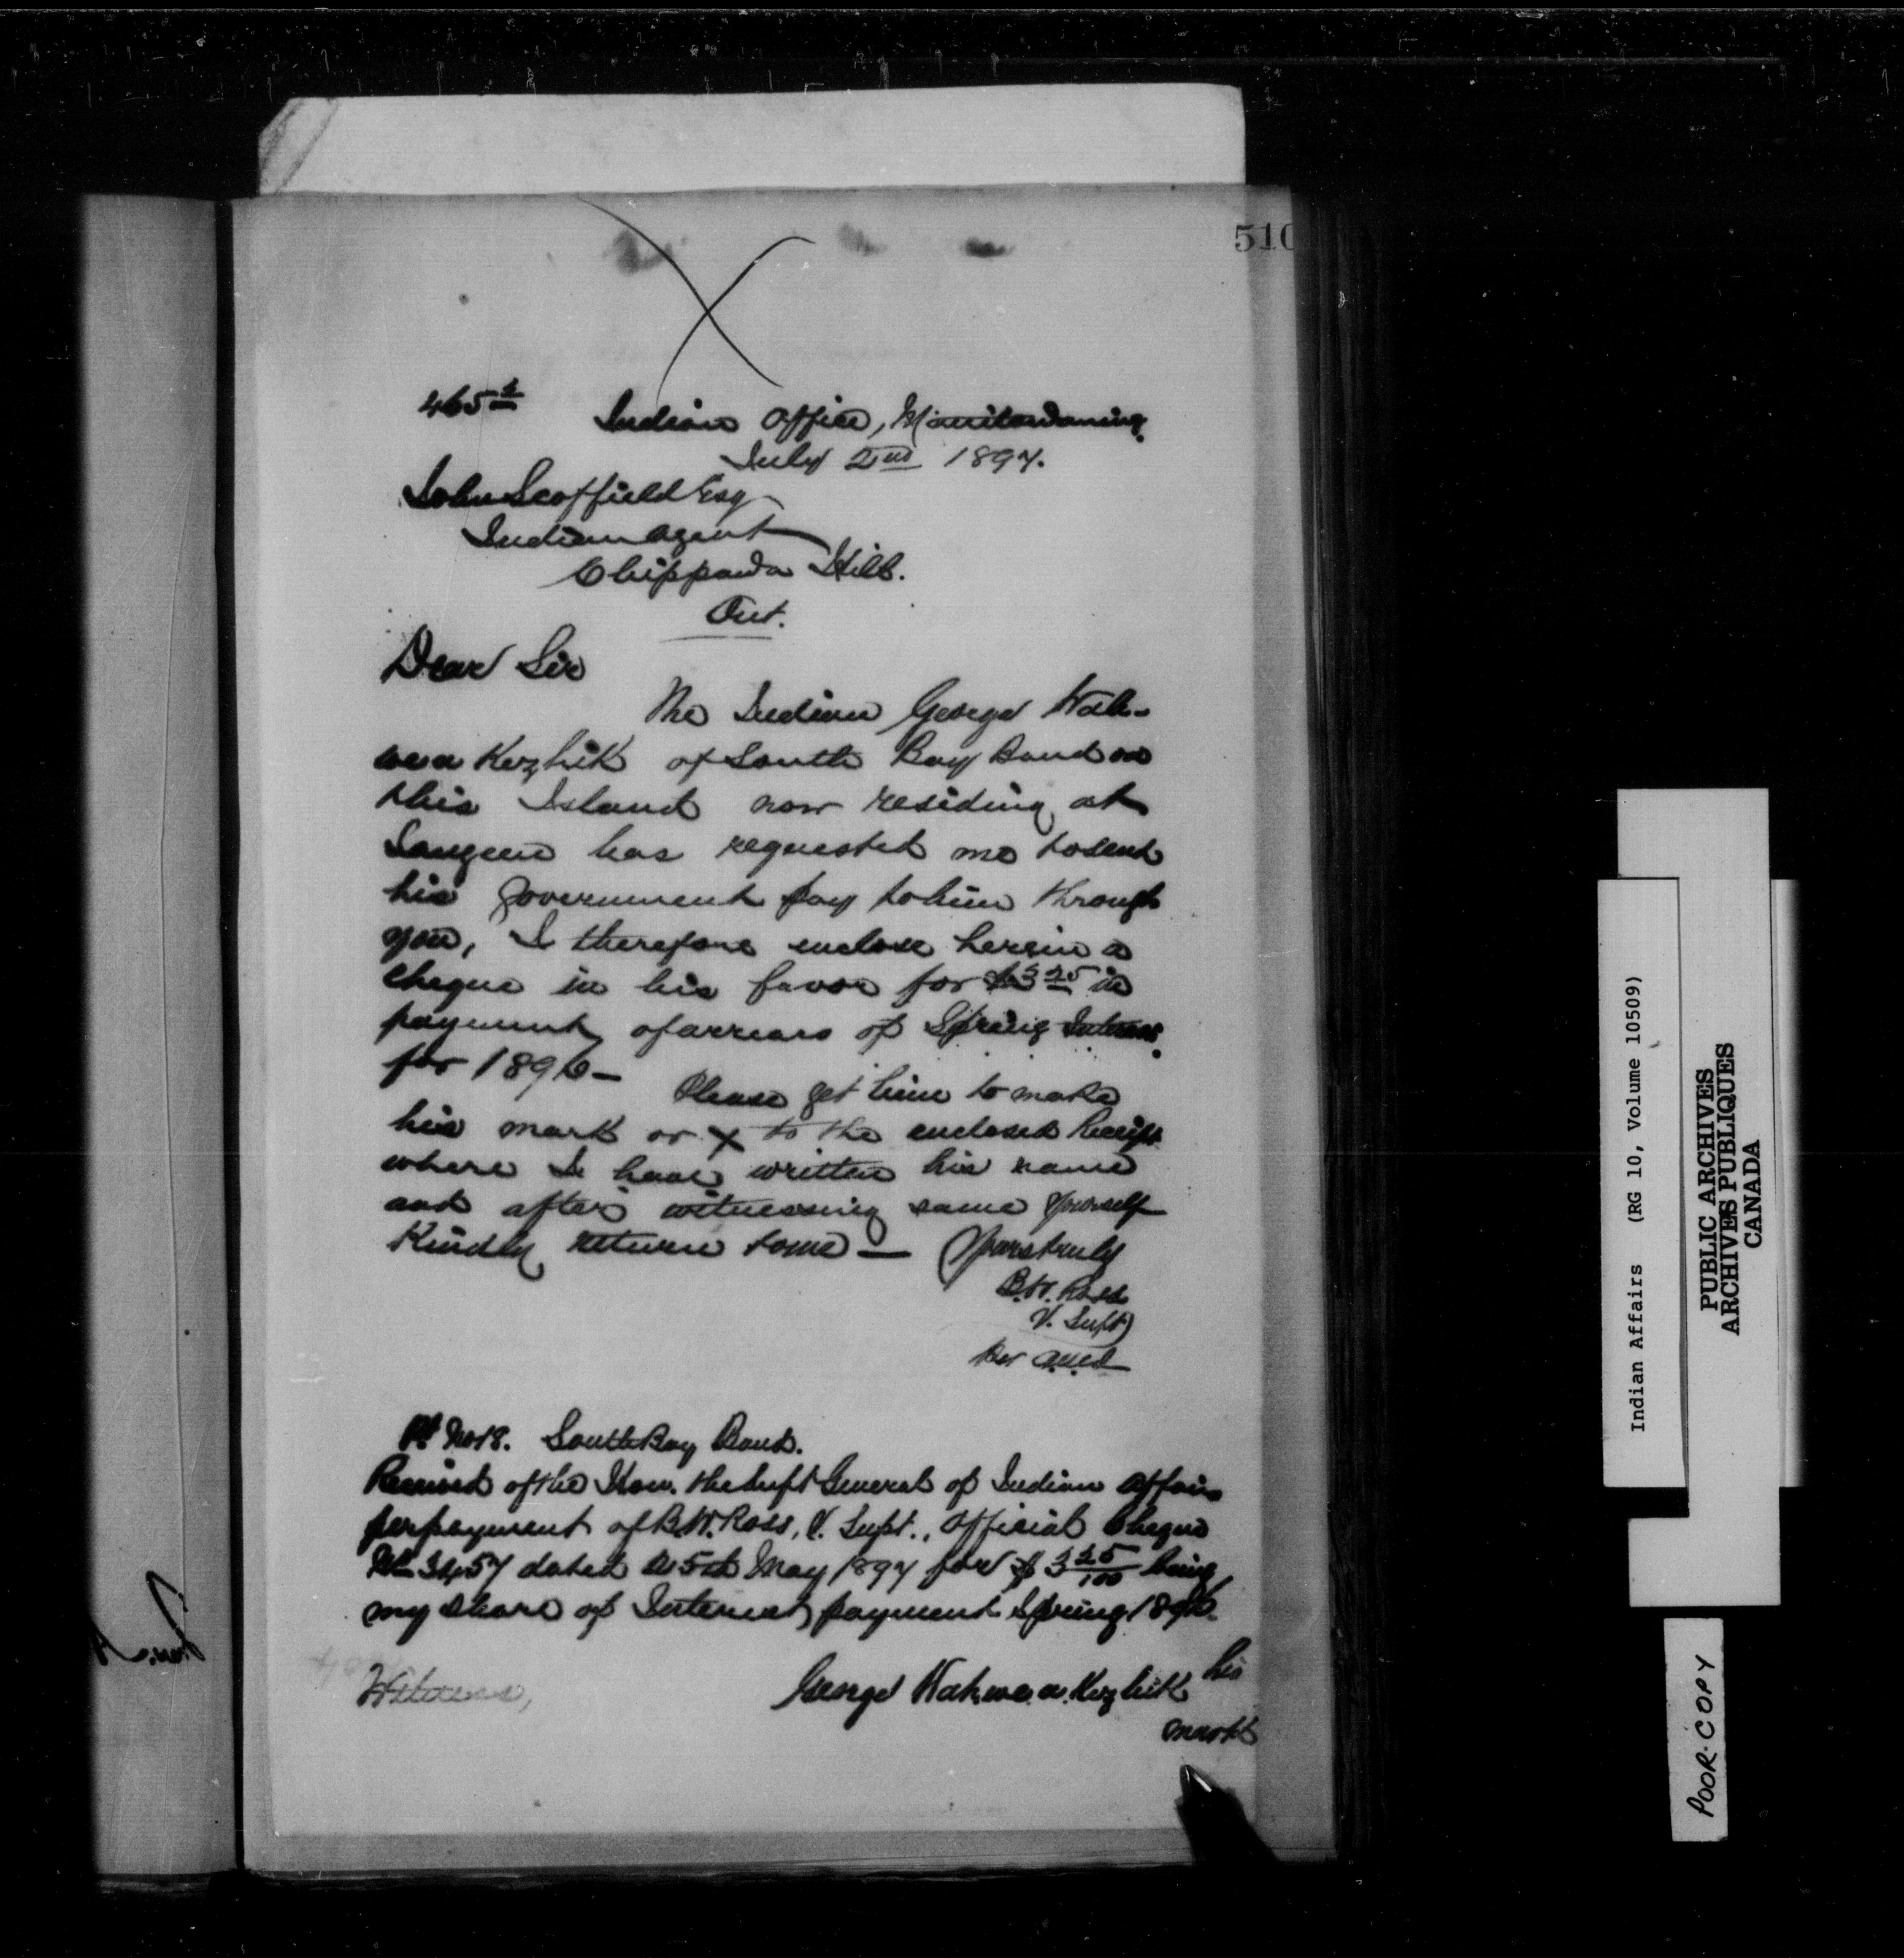 510
465
Indian Office, Manitowaning
July 2nd 1897.
John Scoffield Esq
Indian Agent
Chippawa Hill.
Ont.
Dear Sir
The Indian George Wah-
we a Kezhik of South Bay Band on
this Island now residing at
Saugeen has requested me to send
his Government pay to him through
you, I therefore enclose herein a
cheque in his favor for $3 25 in
payment of arrears of Spring Interest
for 1896 –
Please get him to make
his mark or X to the enclosed Receipt
where I have written his name
and after witnessing same yourself
Kindly return to me – Yours truly
B.W. Ross
V. Supt
Per
No 18. South Bay Band.
Received of the Hon. the Supt General of Indian Affairs
per payment of B.W. Ross, V. Supt., Official Cheque
No 3457 dated 15th May 1897 for $3 25/100 being
my share of Interest payment Spring 1896.
Witness,
George Wahwe a Kezhik his
mark
Indian Affairs (RG 10, Volume 10509)
PUBLIC ARCHIVES
ARCHIVES PUBLIQUES
CANADA
POOR COPY